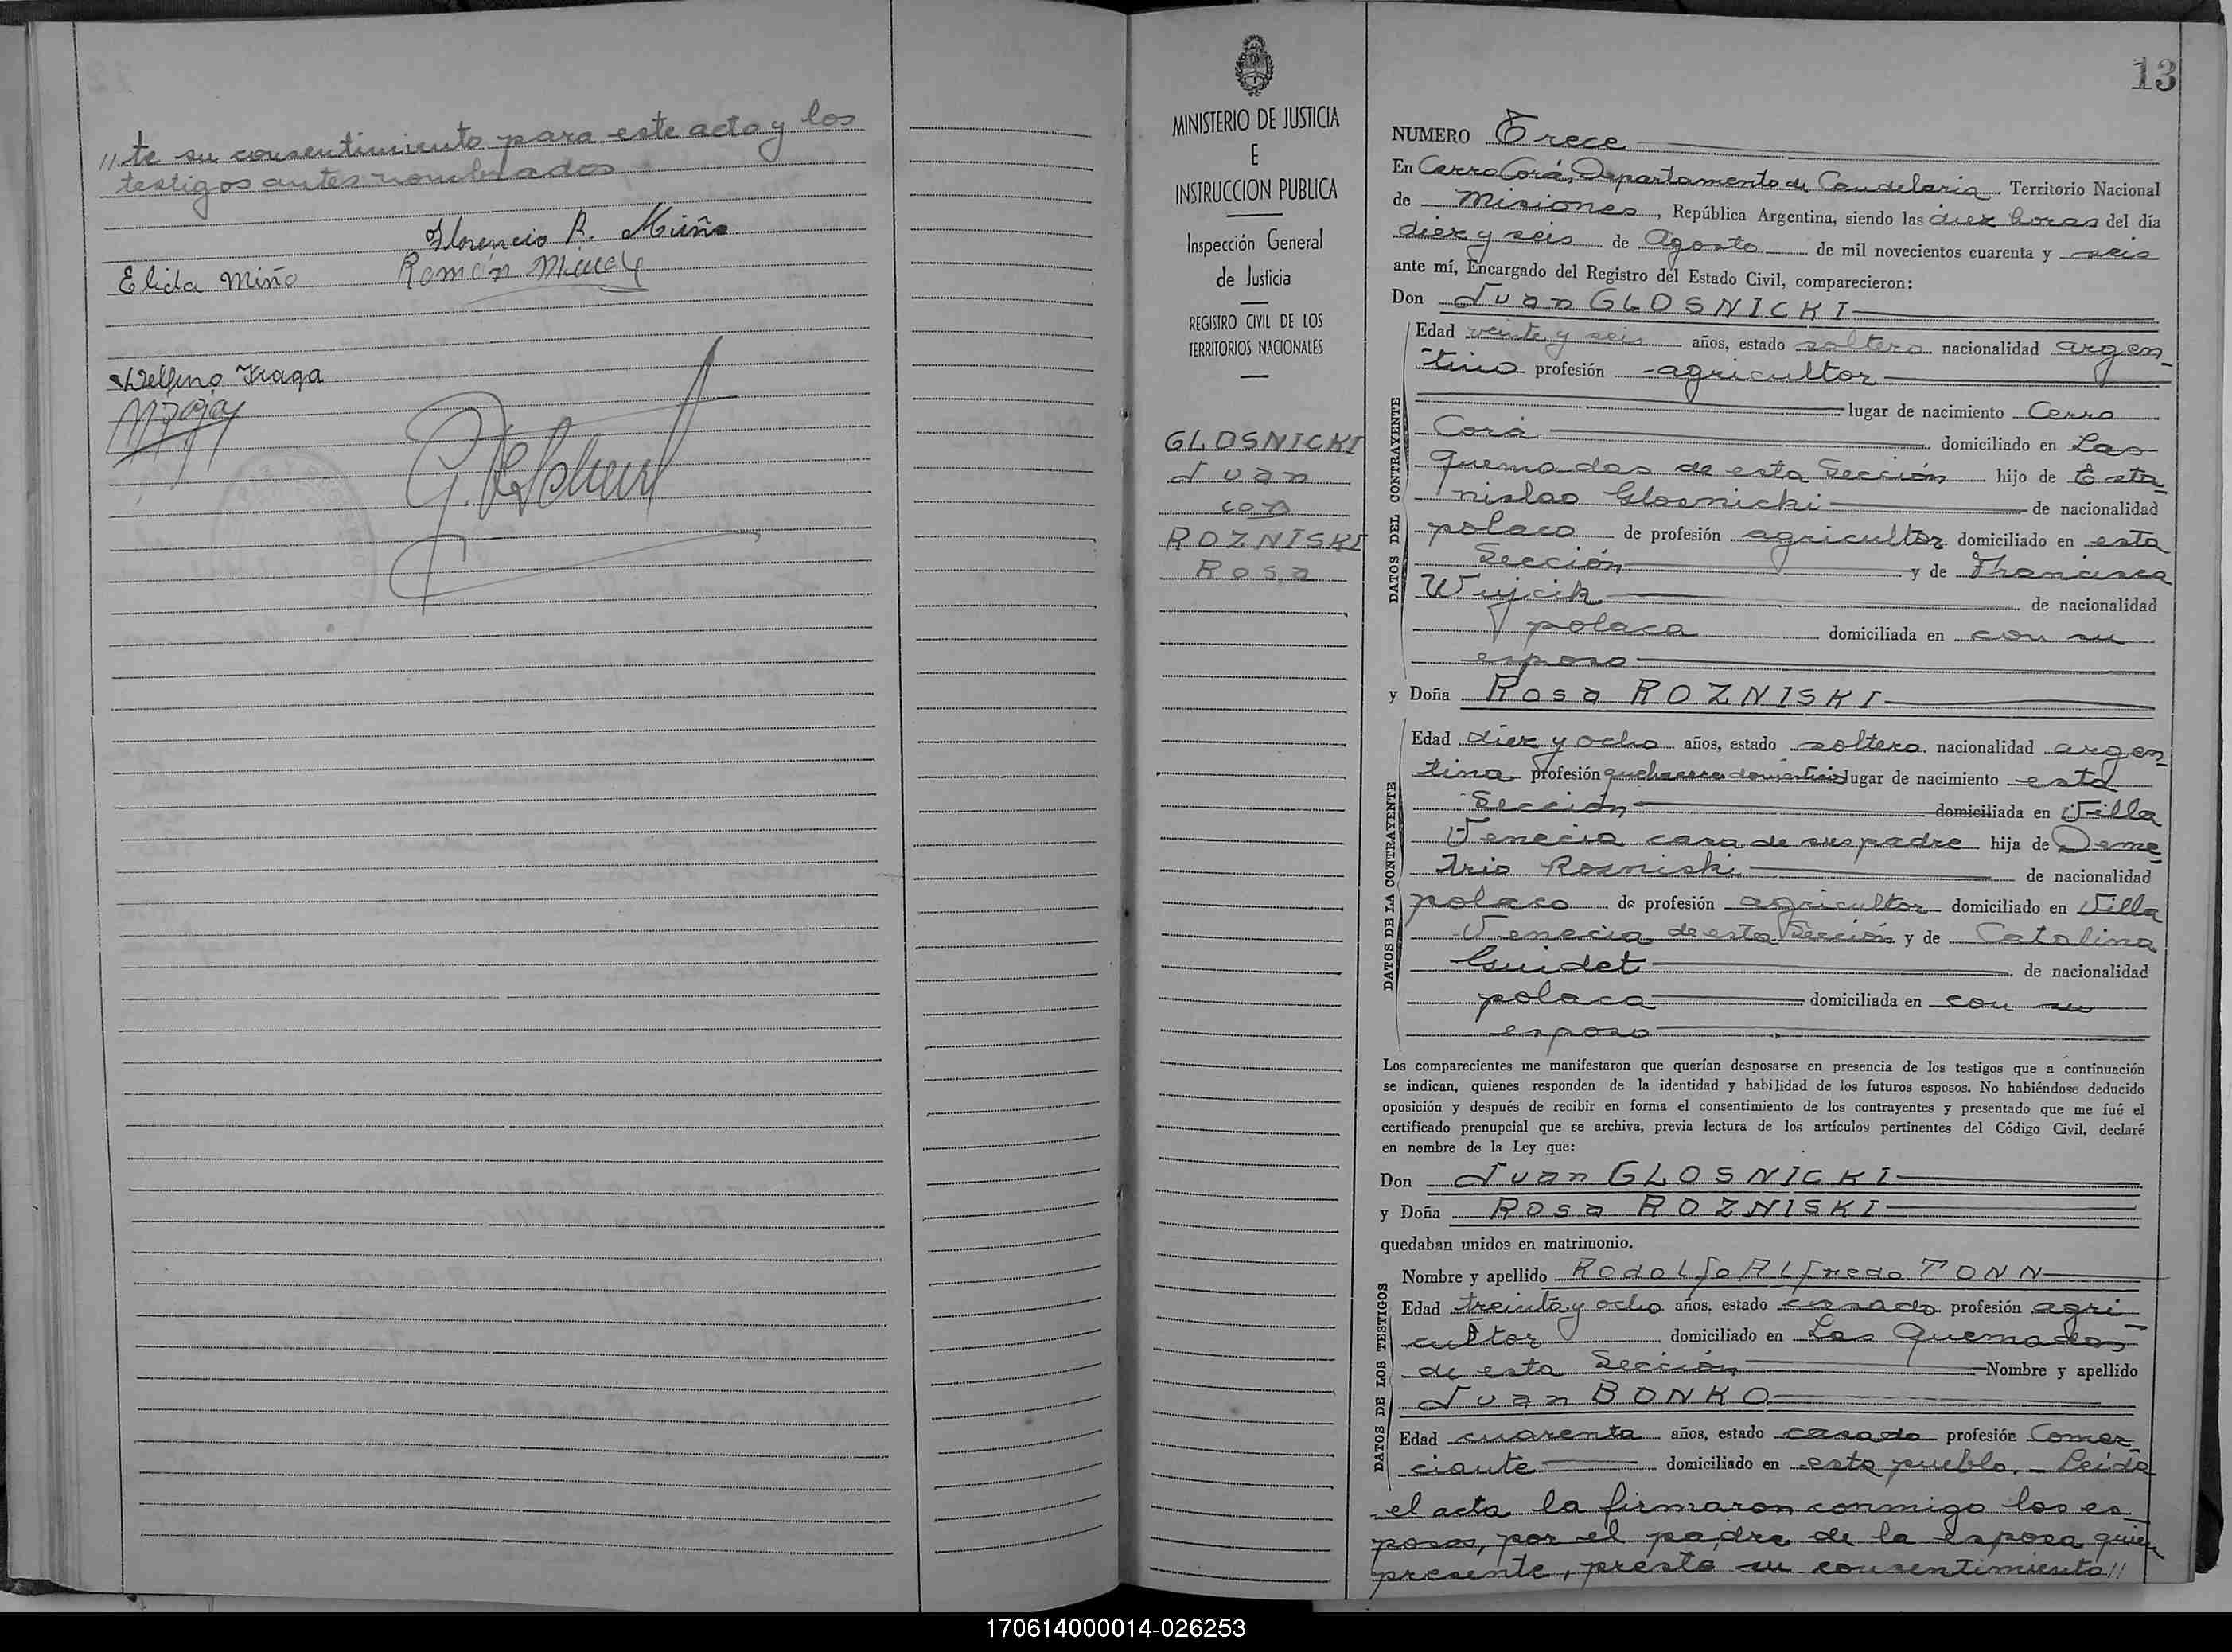 //te su consentimiento para este acto y los
testigos antes nombrados
Florencio R. Miño
Elida Miño
Román
Delfino Fraga
MINISTERIO DE JUSTICIA
E
INSTRUCCION PUBLICA
Inspección General
de Justicia
REGISTRO CIVIL DE LOS
TERRITORIOS NACIONALES
GLOSNICKI
Juan
con
ROZNISKI
Rosa
13
NUMERO Trece
En Cerro Corá, Departamento de Candelaria Territorio Nacional
de Misiones, República Argentina, siendo las diez horas del día
diez y seis de Agosto de mil novecientos cuarenta y seis
ante mí, Encargado del Registro del Estado Civil, comparecieron:
Don Juan GLOSNICKI
DATOS DEL CONTRAYENTE
Edad veinte y seis años, estado soltero nacionalidad argen-
tino profesión agricultor
lugar de nacimiento Cerro
Corá domiciliado en Las
Quemadas de esta Sección hijo de Esta-
nislao Glosnicki de nacionalidad
polaco de profesión agricultor domiciliado en esta
Sección y de Francisca
Wujcik de nacionalidad
polaca domiciliada en con su
esposo
y Doña Rosa ROZNISKI
DATOS DE LA CONTRAYENTE
Edad diez y ocho años, estado soltera nacionalidad argen-
tina profesión quehaceres domésticos lugar de nacimiento esta
Sección domiciliada en Villa
Venecia casa de sus padre hija de Deme-
trio Rozniski de nacionalidad
polaco de profesión agricultor domiciliado en Villa
Venecia de esta Sección y de Catalina
Guidet de nacionalidad
polaca domiciliada en con su
esposo
Los comparecientes me manifestaron que querían desposarse en presencia de los testigos que a continuación
se indican, quienes responden de la identidad y habilidad de los futuros esposos. No habiéndose deducido
oposición y después de recibir en forma el consentimiento de los contrayentes y presentado que me fué el
certificado prenupcial que se archiva, previa lectura de los artículos pertinentes del Código Civil, declaré
en nombre de la Ley que:
Don Juan GLOSNICKI
y Doña Rosa ROZNISKI
quedaban unidos en matrimonio.
DATOS DE LOS TESTIGOS
Nombre y apellido Rodolfo Alfredo TONN
Edad treinta y ocho años, estado casado profesión agri-
cultor domiciliado en Las Quemadas
de esta Sección Nombre y apellido
Juan BONKO
Edad cuarenta años, estado casado profesión Comer-
ciante domiciliado en esta pueblo. - Leida
el acta la firmaron conmigo los es-
posos, por el padre de la esposa quien
presente, presta su consentimiento//
170614000014-026253